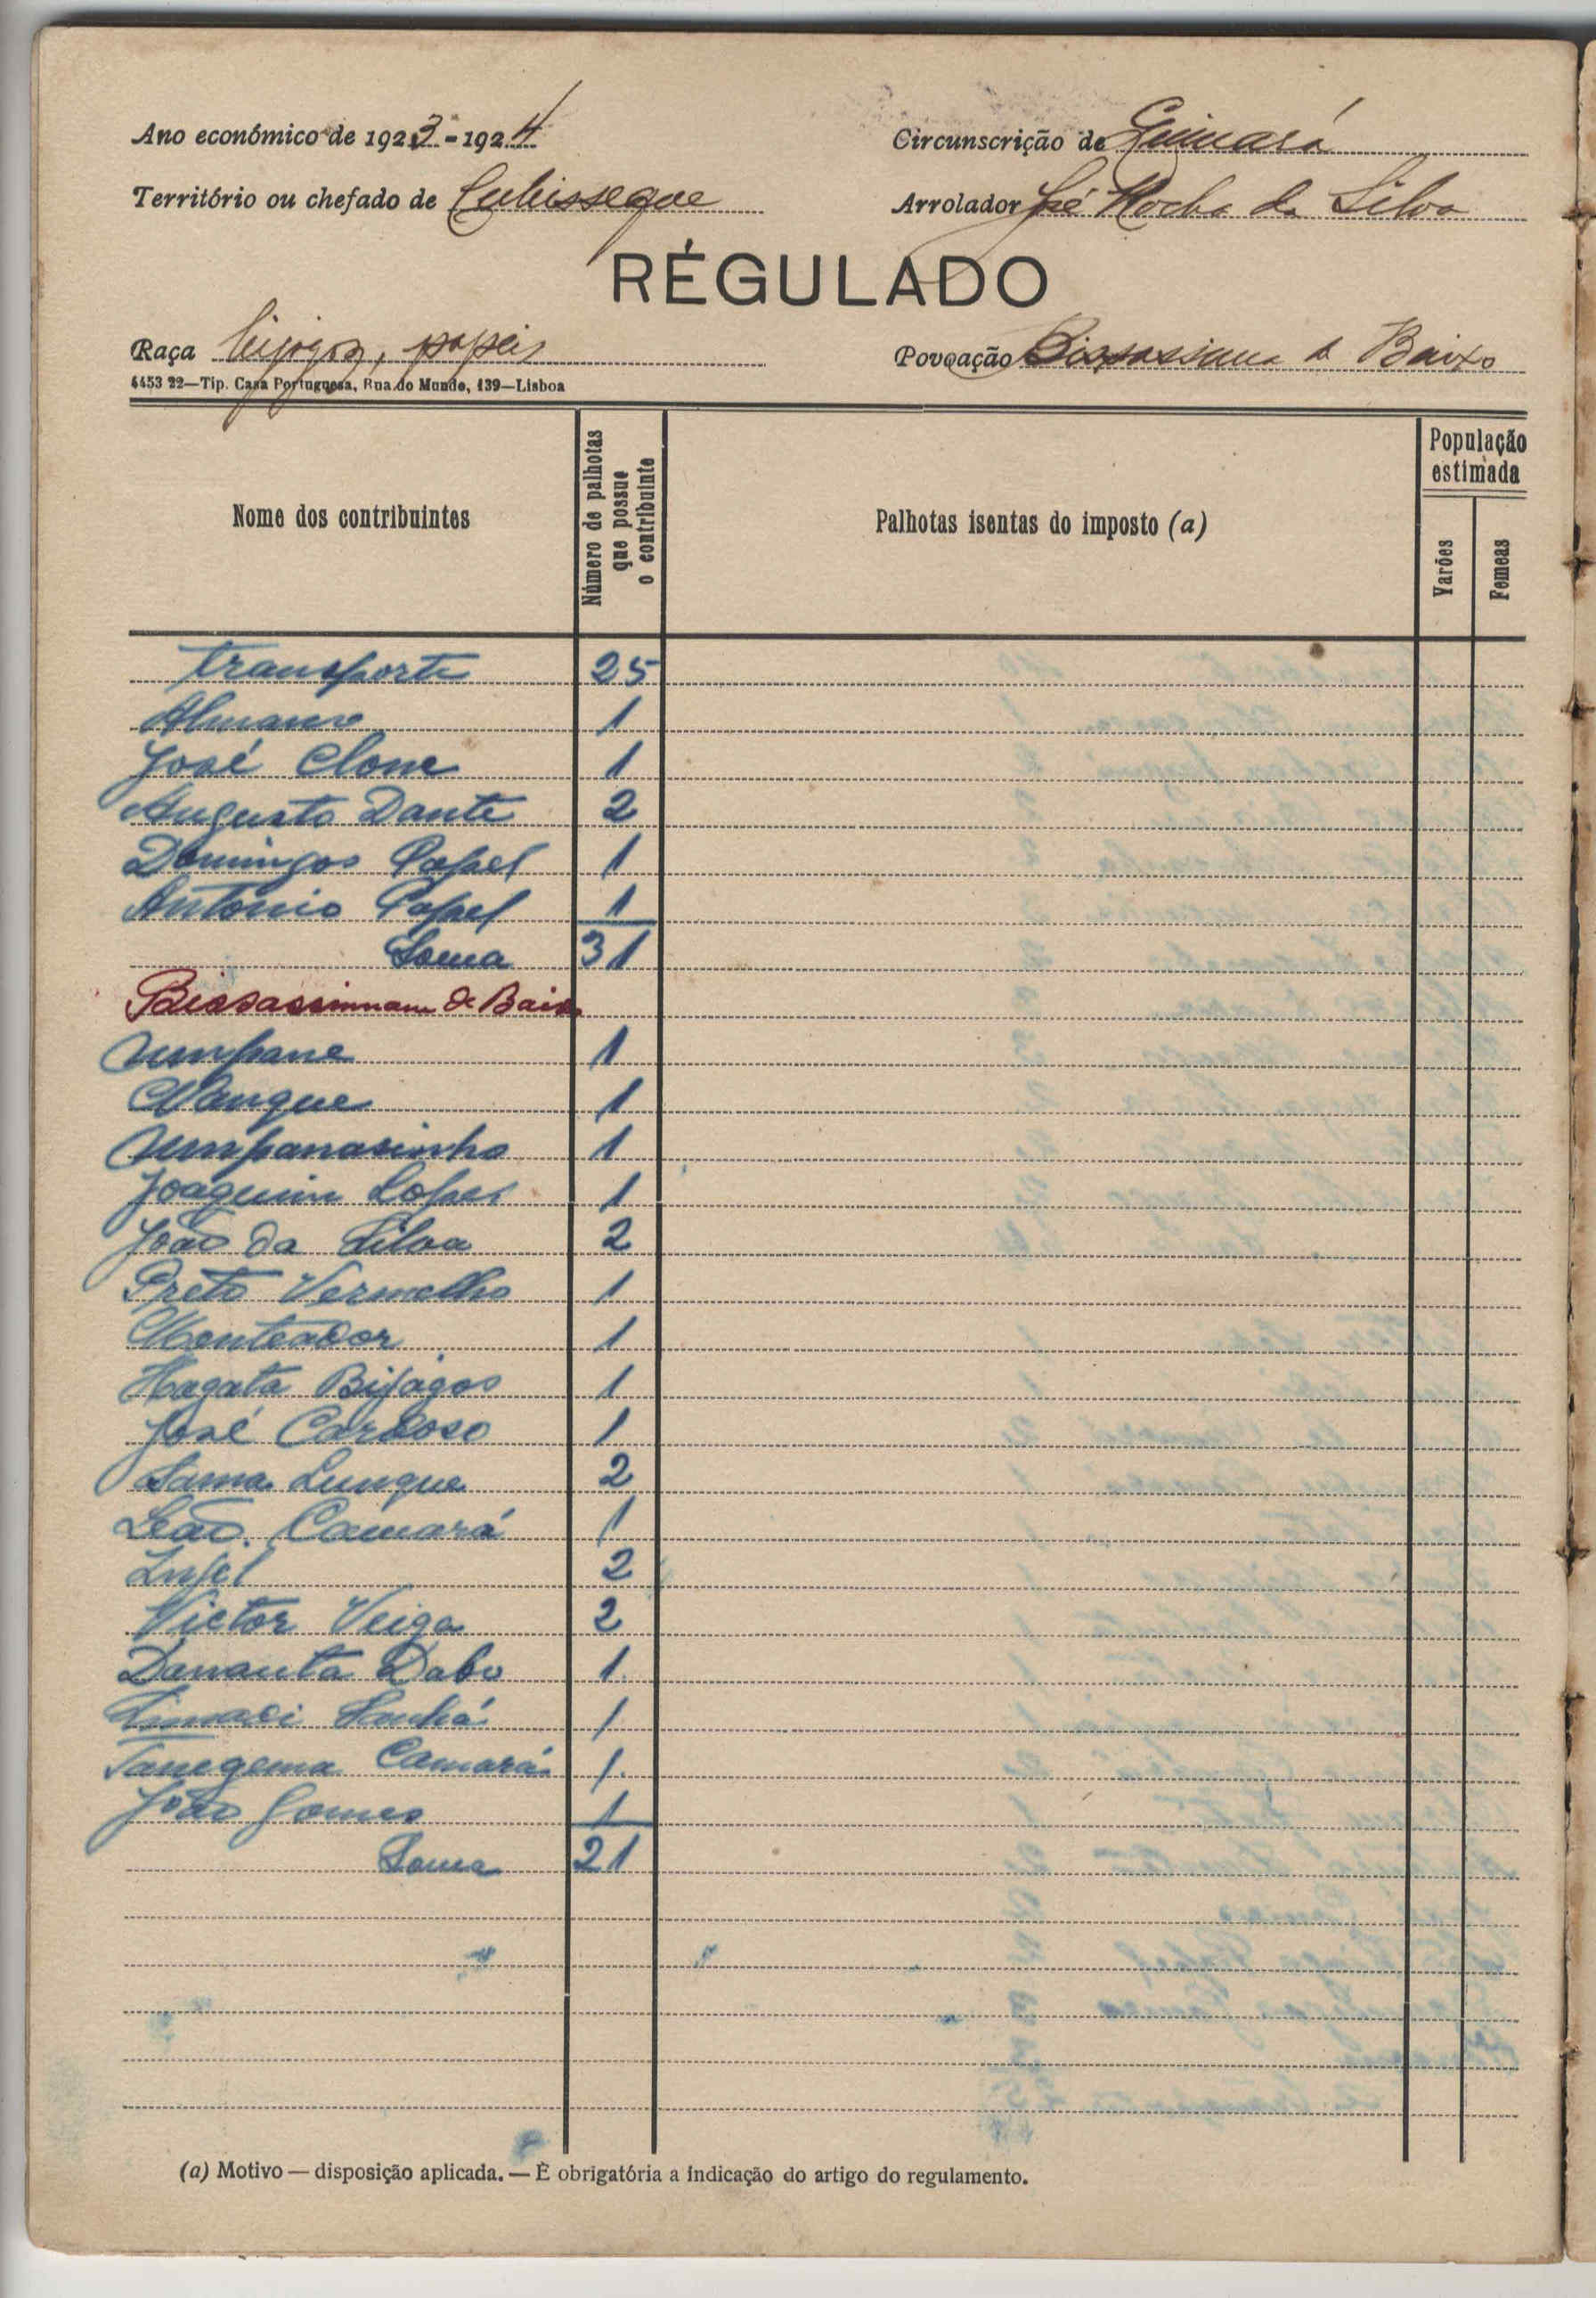 Ano económico de 1923-1924
Circunscrição de Quinará
Território ou chefado de Cubisseque
Arrolador José Rocha da Silva
RÉGULADO
Raça bijagoz, papeis
Povoação Bissassiana de Baixo
4453 22—Tip. Casa Portuguesa, Rua do Mundo, 139—Lisboa
Nome dos contribuintes
Número de palhotas que possue o contribuinte
Palhotas isentas do imposto (a)
População estimada
Varões
Femeas
Transporte 25
1
José Clone 1
Augusto Dante 2
Domingos Papel 1
Antonio Papel 1
Soma 31
Bissassinnam de Baixo
Umpane 1
Mangue 1
Umpanasinho 1
Joaquim Lopes 1
João da Silva 2
Preto Vermelho 1
Monteador 1
Hagata Bijagos 1
José Cardoso 1
Sama Lunque 2
Leão Camará 1
2
Victor Veiga 2
Danauta Dabo 1
Sanhá 1
Camará 1
João Gomes 1
Soma 21
(a) Motivo — disposição aplicada. — É obrigatória a indicação do artigo do regulamento.